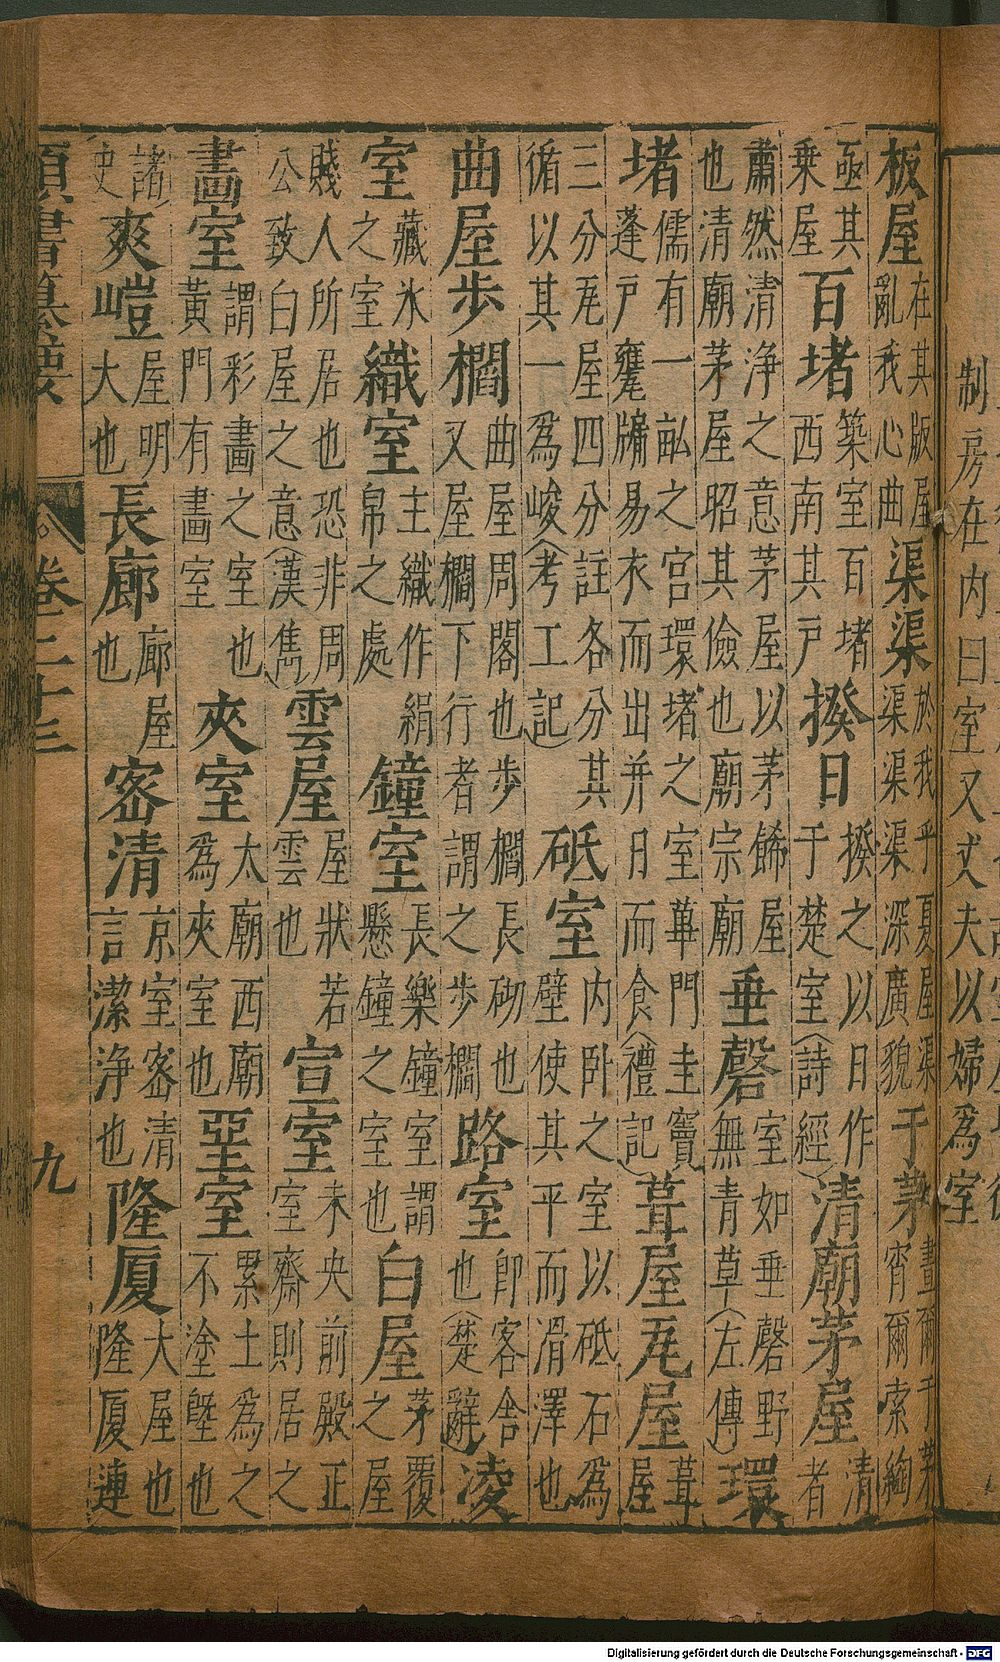 制房在内曰室又丈夫以婦爲室
板屋在其版屋亂我心曲渠渠於我乎夏屋渠渠渠渠深廣貌于茅晝爾于茅宵爾索綯
亟其乘屋百堵築室百堵西南其戸揆日揆之以日作于楚室(詩經)清廟茅屋清者
肅然清浄之意茅屋以茅餙屋也清廟茅屋昭其儉也廟宗廟垂磬室如垂磬野無青草(左傳)環
堵儒有一畝之宫環堵之室蓽門圭竇蓬戸甕牖易衣而出并日而食(禮記)葺屋瓦屋葺屋
三分瓦屋四分註各分其循以其一爲峻(考工記)砥室内卧之室以砥石爲壁使其平而滑澤也
曲屋步櫩曲屋周閣也步櫩長砌也又屋櫩下行者謂之步櫩路室即客舍也(楚辭)凌
室藏氷之室織室主織作絹帛之處鐘室長樂鐘室謂懸鐘之室也白屋茅覆之屋
賤人所居也恐非周公致白屋之意(漢雋)雲屋屋狀若雲也宣室未央前殿正室齋則居之
畫室謂彩畫之室也黃門有畫室夾室太廟西廟爲夾室也堊室累土爲之不塗塈也
諸史爽塏屋明大也長廊廊屋也宻清京室宻清言潔浄也隆厦大屋也隆厦連
類書纂要 卷二十三 九
Digitalisierung gefördert durch die Deutsche Forschungsgemeinschaft - DFG